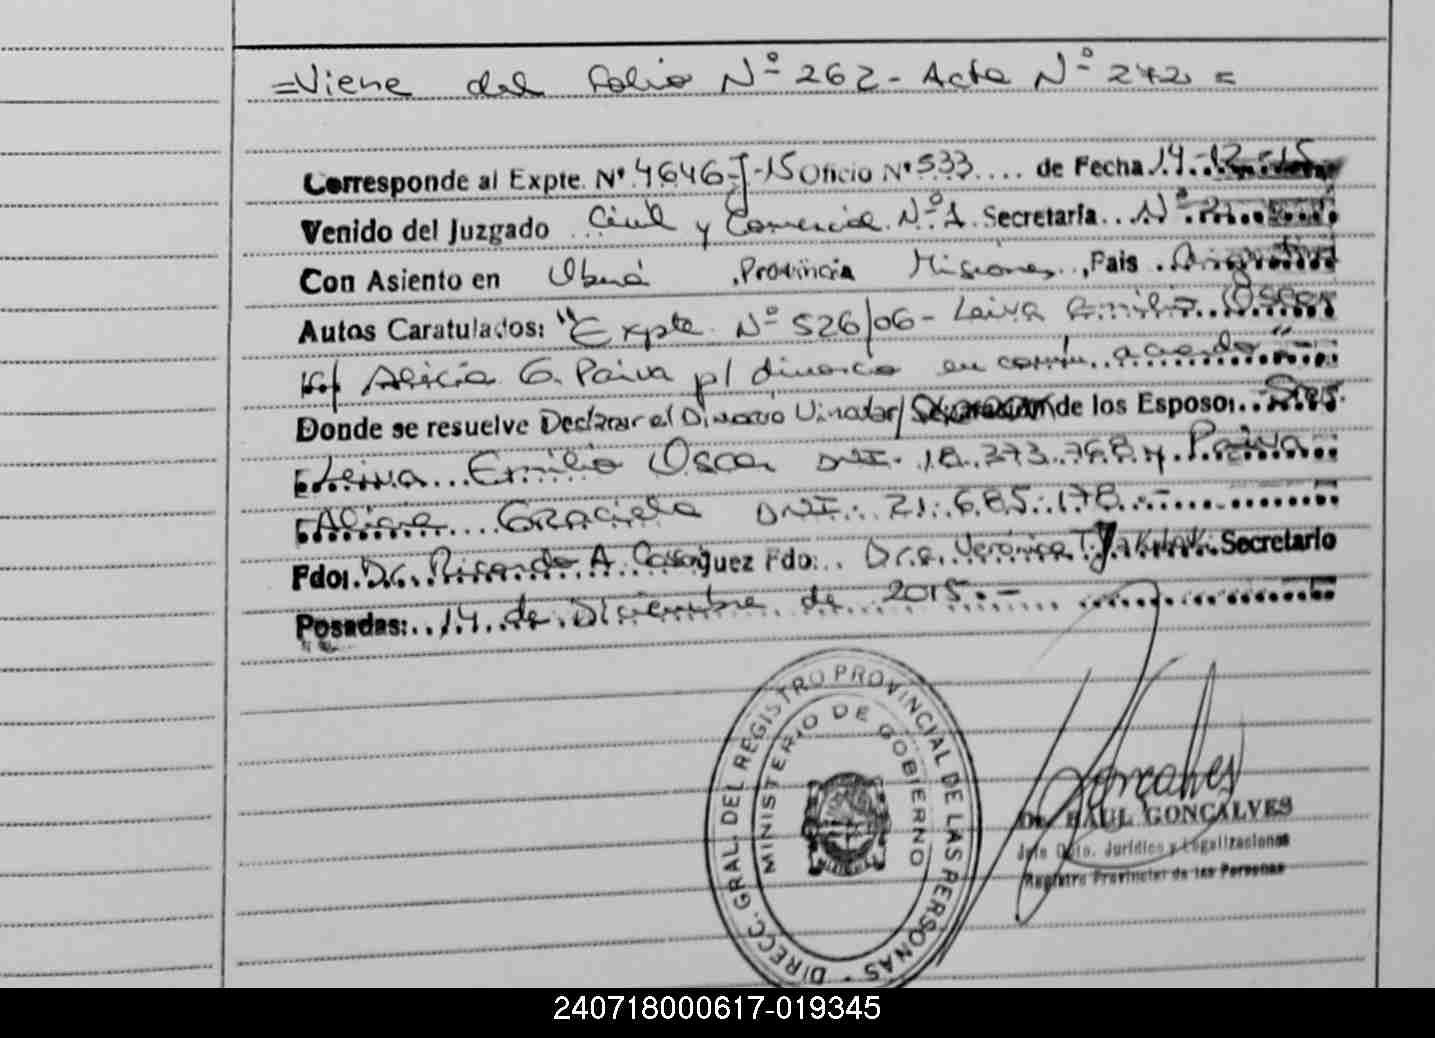 =Viene del Folio Nº 262 - Acta Nº 242 =
Corresponde al Expte. Nº 4646-J-15 Oficio Nº 533.... de Fecha 14-12-15
Venido del Juzgado Civil y Comercial Nº 1 Secretaría.. Nº 2
Con Asiento en Oberá, Provincia Misiones, Pais Argentina
Autos Caratulados: "Expte. Nº 526/06 - Leiva Emilio Oscar
c/ Alicia G. Paiva p/ divorcio en común acuerdo"
Donde se resuelve Declarar el Divorcio Vincular/ de los Esposos
Leiva Emilio Oscar DNI. 18.373.768 y Paiva
Alicia Graciela DNI. 21.685.178.-
Fdo: Dr. Ricardo A. Fdo: Dra. Verónica Secretario
Posadas: 14 de Diciembre de 2015.-
DIRECC. GRAL. DEL REGISTRO PROVINCIAL DE LAS PERSONAS -
MINISTERIO DE GOBIERNO
Dr. RAUL GONCALVES
Jefe Dpto. Jurídico y Legalizaciones
Registro Provincial de las Personas
240718000617-019345